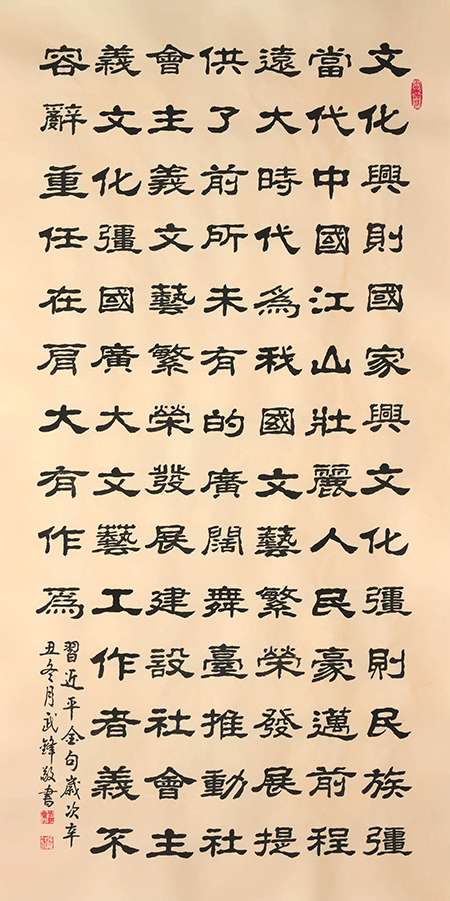 文化興則國家興文化彊則民族彊
當代中國江山壯麗人民豪邁前程
遠大時代為我國文藝繁榮發展提
供了前所未有的廣闊舞臺推動社
會主義文藝繁榮發展建設社會主
義文化彊國廣大文藝工作者義不
容辭重任在肩大有作為
習近平金句歲次辛
丑冬月武鋒敬書